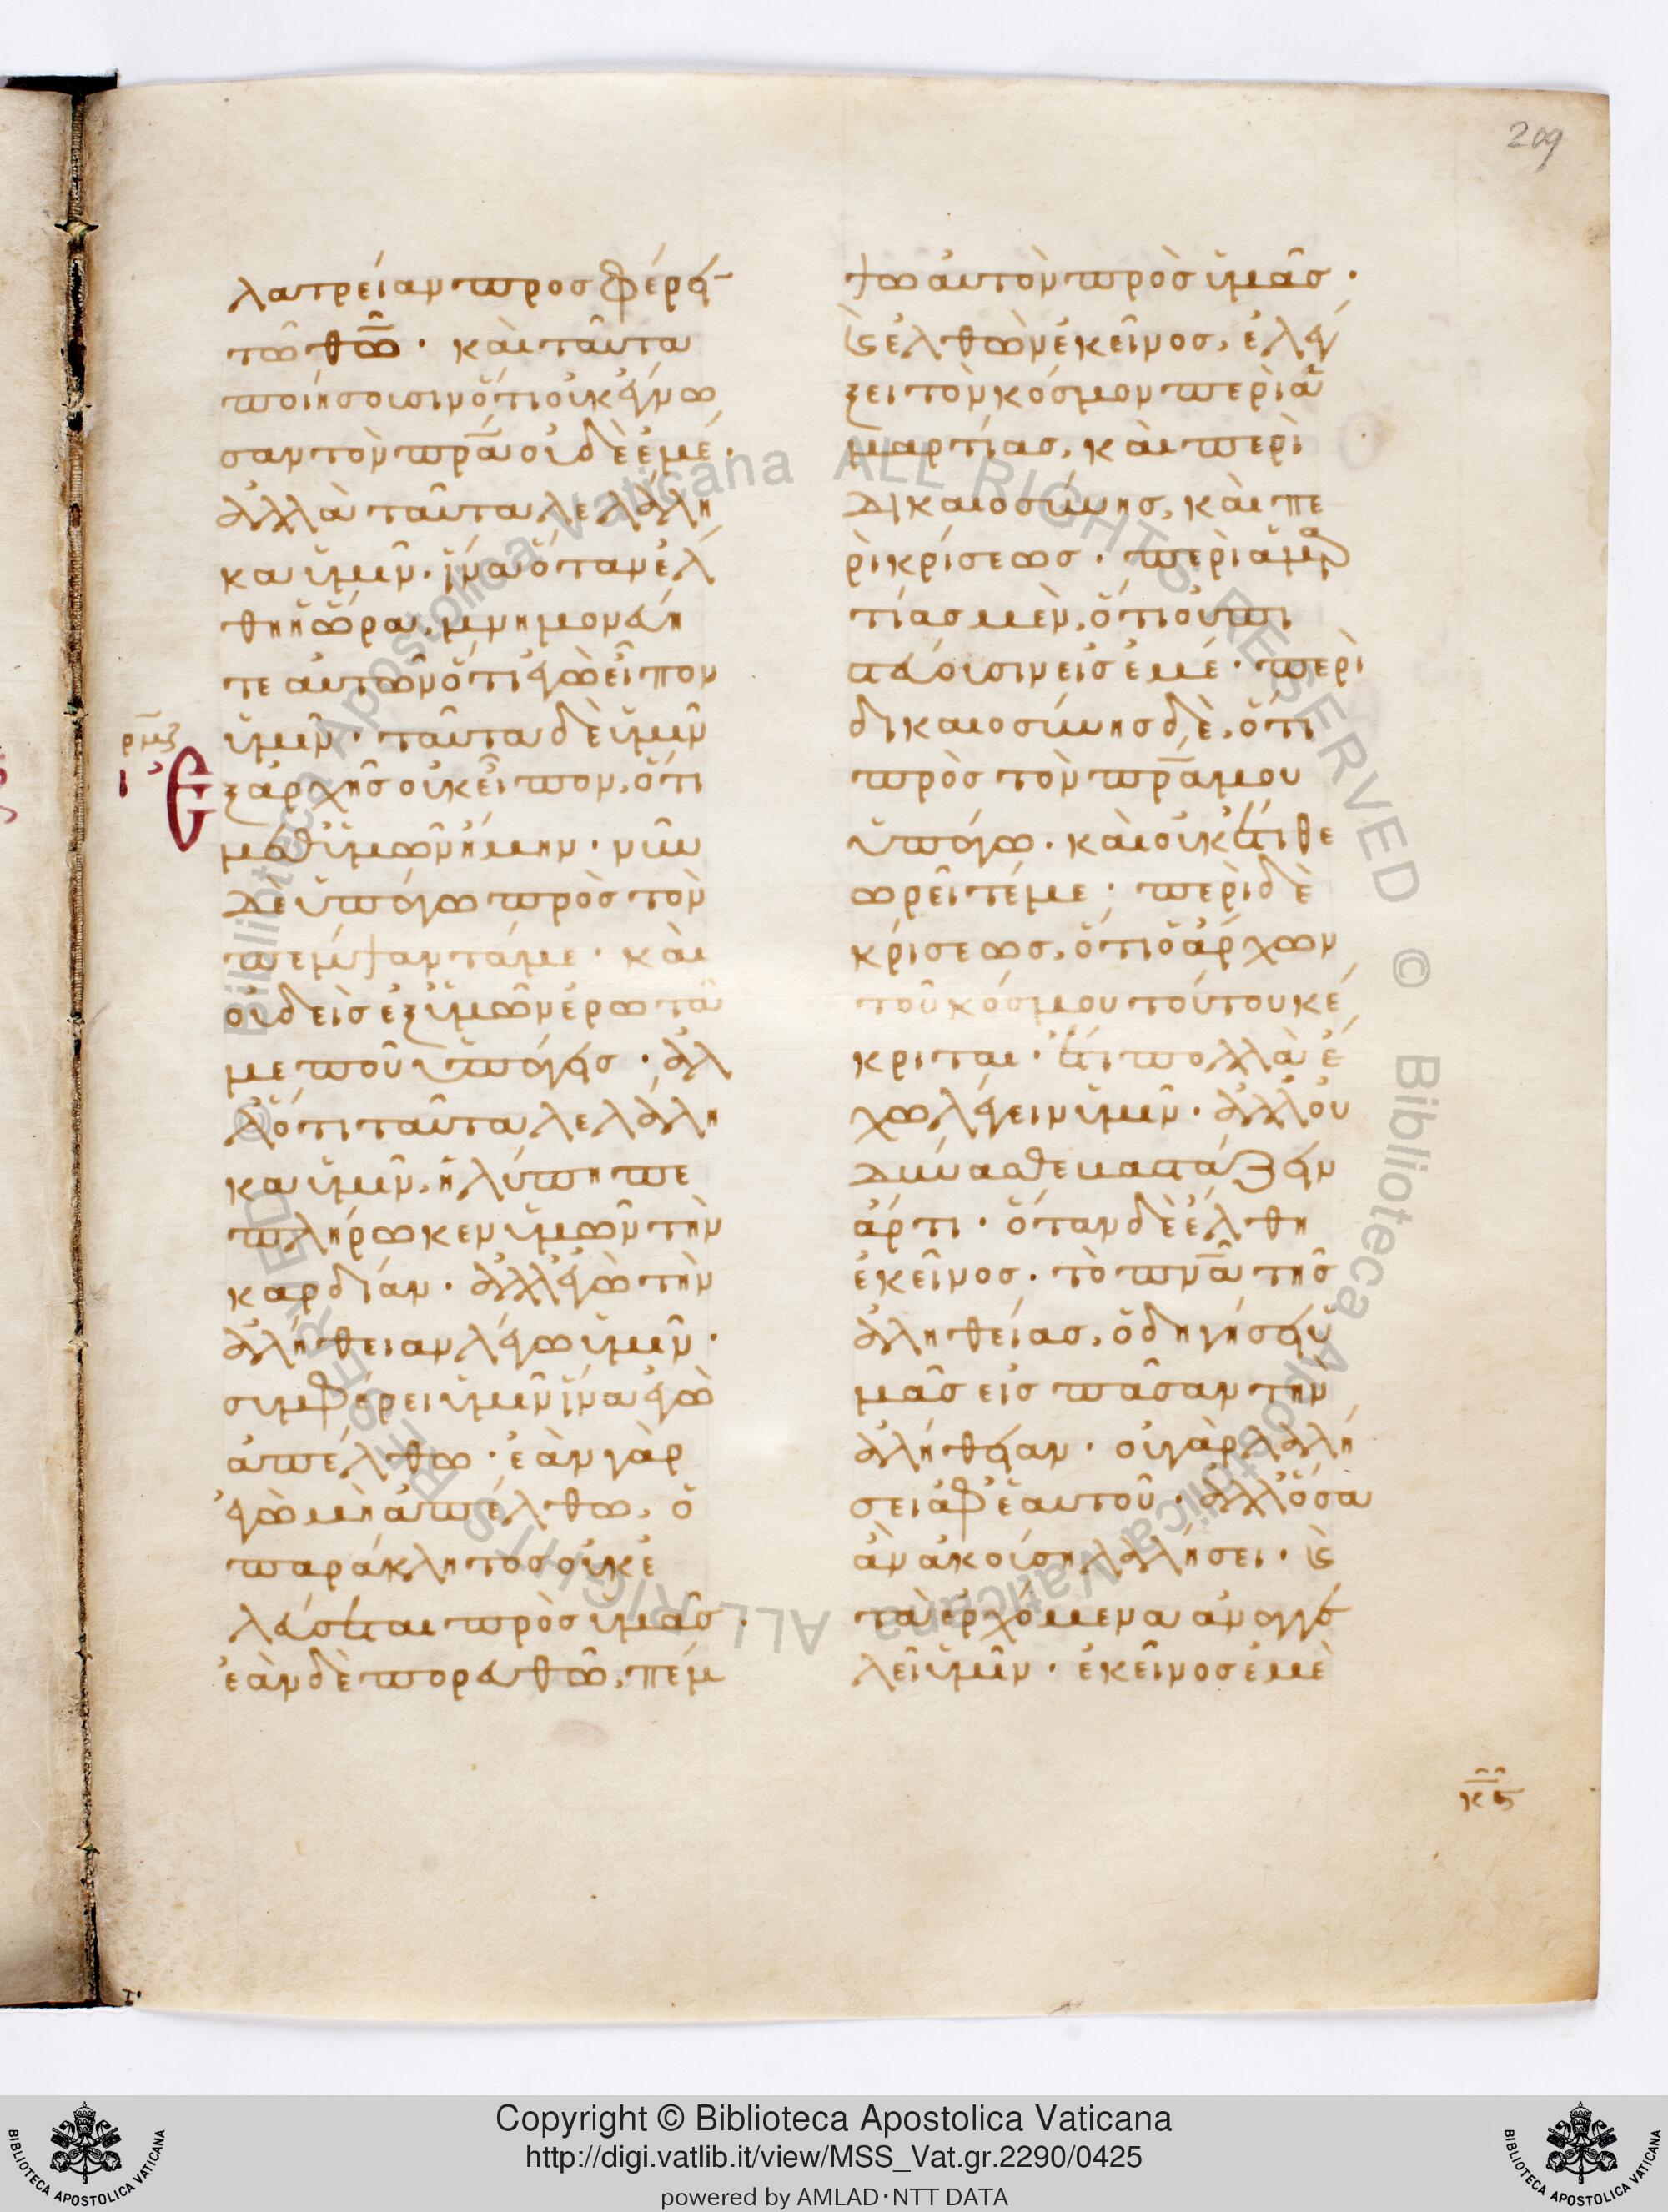 209
λατρείαν προσφέρειν
τῶ θω̅. καὶ ταῦτα
ποιήσουσιν ὅτι οὐκ ἔγνω
σαν τὸν πρ̅α οὐδὲ ἐμέ.
ἀλλὰ ταῦτα λελάλη
κα ὑμῖν. ἵνα ὅταν ἔλ
θη ἡ ὥρα, μνημονεύη
τε αὐτῶν ὅτι ἐγὼ εἶπον
ρμζ
ι
ὑμῖν. ταῦτα δὲ ὑμῖν
Ἐξαρχῆς οὐκ εἶπον, ὅτι
μεθ ὑμῶν ἤμην. νῦν
δὲ ὑπάγω πρὸς τὸν
πέμψαντά με. καὶ
οὐδεὶς ἐξ ὑμῶν ἐρωτᾶ
με ποῦ ὑπάγεις. ἀλ
λ ὅτι ταῦτα λελάλη
κα ὑμῖν, ἡ λύπη πε
πλήρωκεν ὑμῶν τὴν
καρδίαν. ἀλλ ἐγὼ τὴν
ἀλήθειαν λέγω ὑμῖν.
συμφέρει ὑμῖν ἵνα ἐγὼ
ἀπέλθω. ἐὰν γὰρ
ἐγὼ μὴ ἀπέλθω, ὁ
παράκλητος οὐκ ἐ
λεύσεται πρὸς ὑμᾶς.
ἐὰν δὲ πορευθῶ, πέμ
ψω αὐτὸν πρὸς ὑμᾶς.
ϗ ἐλθὼν ἐκεῖνος, ἐλέγ
ξει τὸν κόσμον περὶ ἁ
μαρτίας, καὶ περὶ
δικαιοσύνης, καὶ πε
ρὶ κρίσεως. περὶ ἁμαρ
τίας μὲν, ὅτι οὐ πι
στεύουσιν εἰς ἐμέ. περὶ
δικαιοσύνης δὲ, ὅτι
πρὸς τὸν πρ̅α μου
ὑπάγω. καὶ οὐκ ἔτι θε
ωρεῖτέ με. περὶ δὲ
κρίσεως, ὅτι ὁ ἄρχων
τοῦ κόσμου τούτου κέ
κριται. ἔτι πολλὰ ἔ
χω λέγειν ὑμῖν. ἀλλ οὐ
δύνασθε βαστάζειν
ἄρτι. ὅταν δὲ ἔλθη
ἐκεῖνος. τὸ πν̅α τῆς
ἀληθείας, ὁδηγήσει ὑ
μᾶς εἰς πᾶσαν τὴν
ἀλήθειαν. οὐ γὰρ λαλή
σει ἀφ ἑαυτοῦ. ἀλλ ὅσα
ἂν ἀκούση λαλήσει. ϗ
τὰ ἐρχόμενα ἀναγγε
λεῖ ὑμῖν. ἐκεῖνος ἐμὲ
κϛ
Copyright © Biblioteca Apostolica Vaticana
http://digi.vatlib.it/view/MSS_Vat.gr.2290/0425
powered by AMLAD·NTT DATA
BIBLIOTECA APOSTOLICA VATICANA
BIBLIOTECA APOSTOLICA VATICANA
© Biblioteca Apostolica Vaticana ALL RIGHTS RESERVED
© Biblioteca Apostolica Vaticana ALL RIGHTS RESERVED